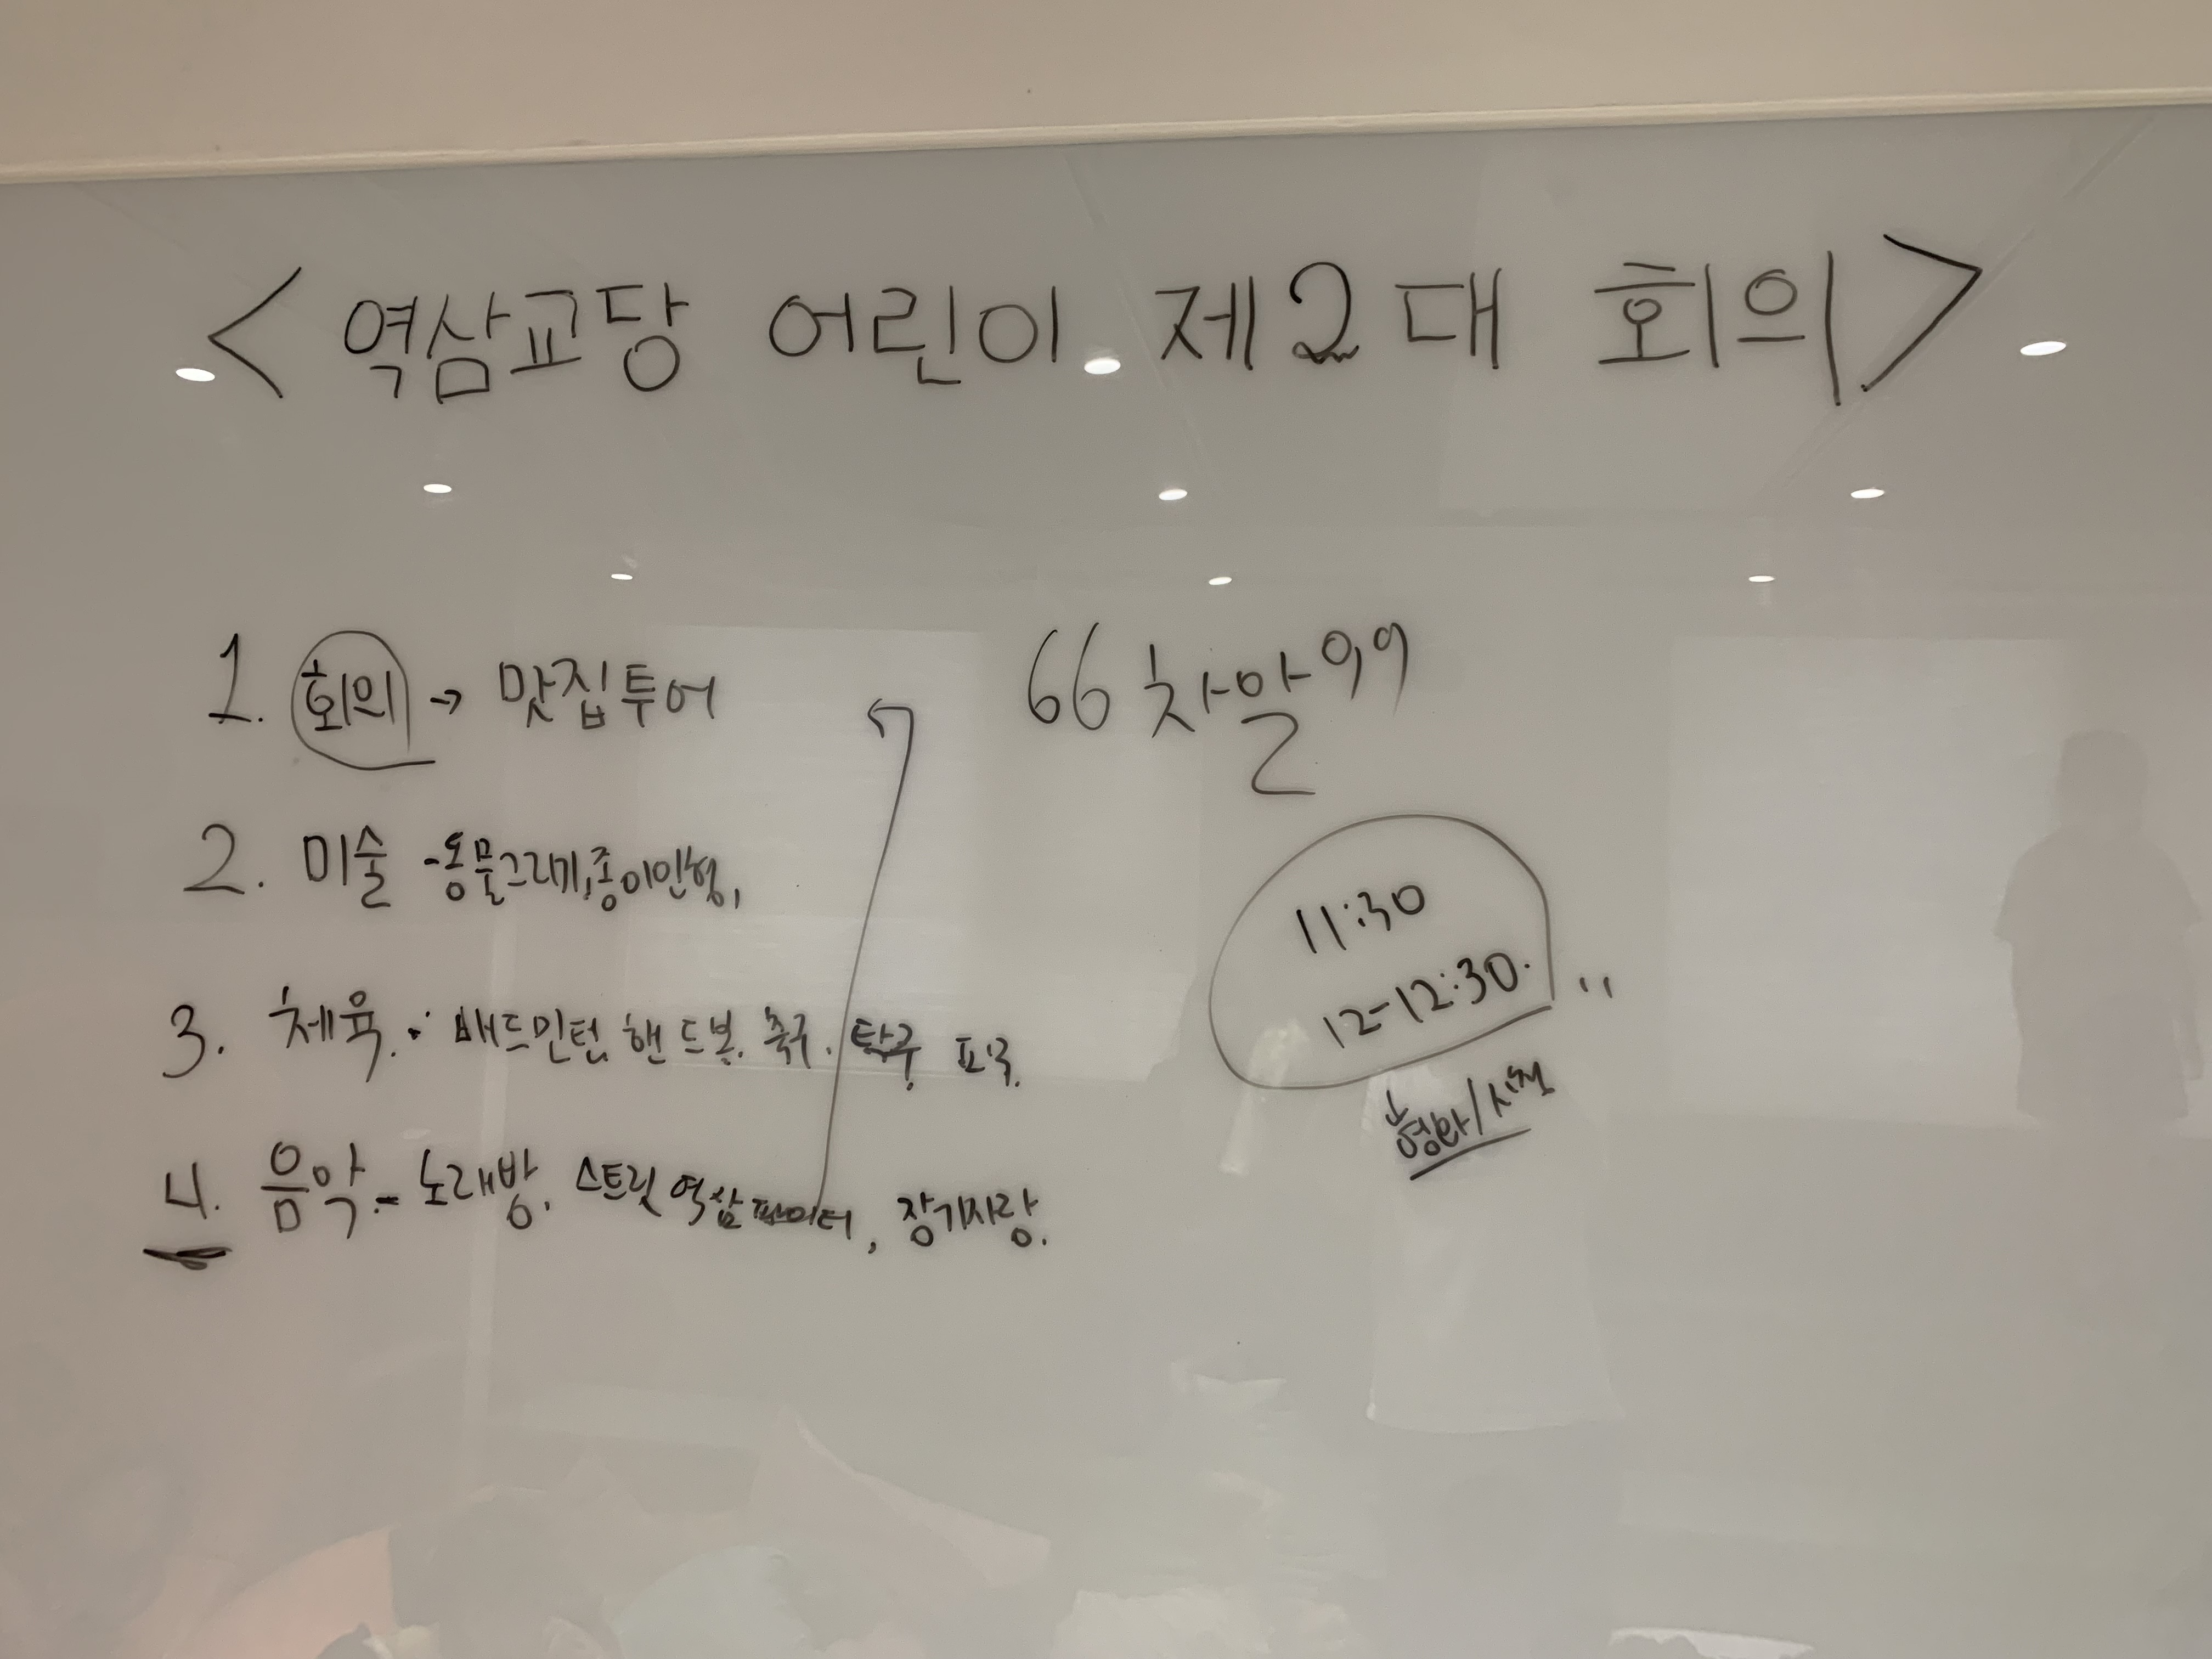 <역삼교당 어린이 제2대 회의>
1. 회의 → 맛집투어
66 차알 99
2. 미술 - 동물그리기, 종이인형,
11:30
12-12:30.
3. 체육. 배드민턴, 핸드볼. 축구. 탁구 피구.
4. 음악. - 노래방, 스트릿 역삼 파이터, 장기자랑.